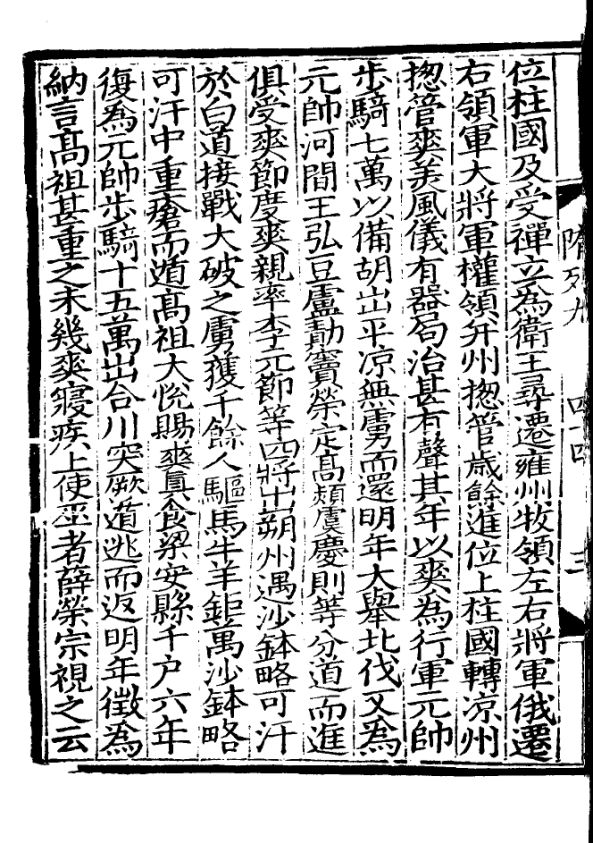 隋列九 四十四 三
位柱國及受禪立為衛王尋遷雍州牧領左右將軍俄遷
右領軍大將軍權領并州揔管歳餘進位上柱國轉凉州
揔管爽美風儀有器局治甚有聲其年以爽為行軍元帥
步騎七萬以備胡出平凉無虜而還明年大舉北伐又為
元帥河間王弘豆盧勣竇榮定高熲虞慶則等分道而進
俱受爽節度爽親率李元節等四將出朔州遇沙鉢略可汗
於白道接戰大破之虜獲千餘人驅馬牛羊鉅萬沙鉢略
可汗中重瘡而遁髙祖大悅賜爽真食梁安縣千户六年
復為元帥步騎十五萬出合川突厥遁逃而返明年徵為
納言髙祖甚重之未幾爽寝疾上使巫者薛榮宗視之云